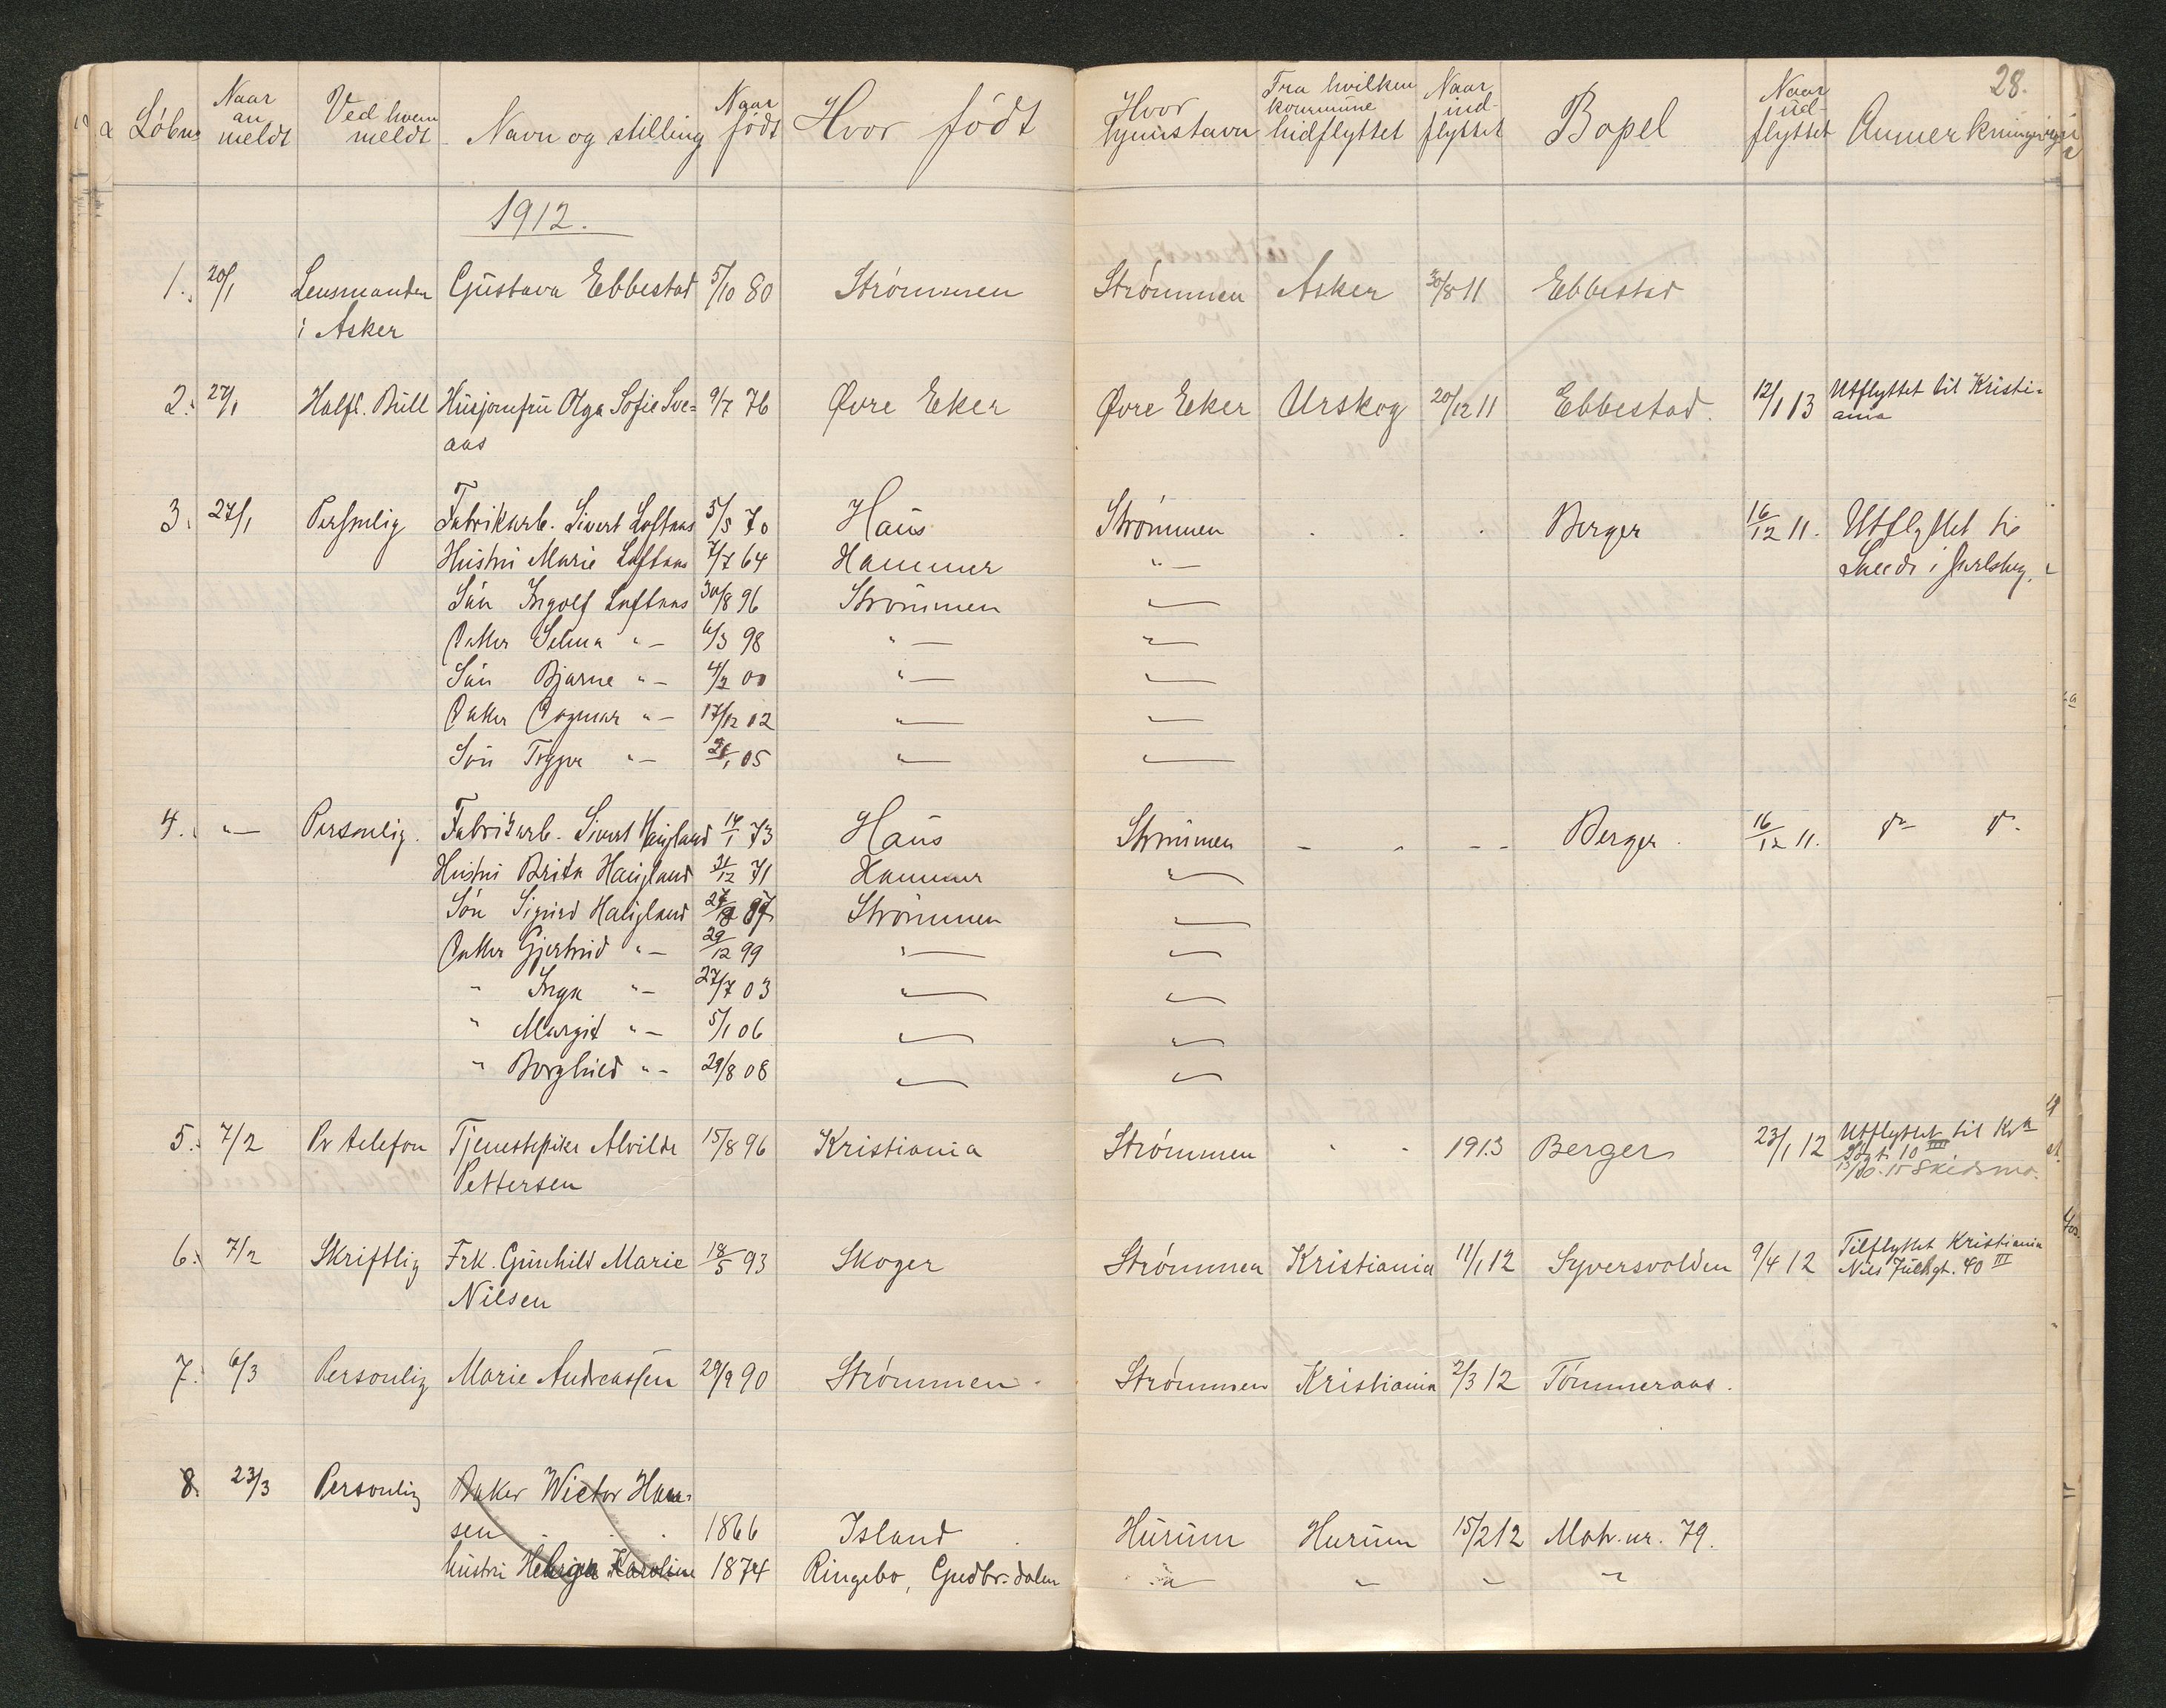 28.
Løbnr Naar an meldt Ved hvem meldt Navn og stilling Naar født Hvor født Hvor hjemstavn Fra hvilken kommune hidflyttet Naar ind-flyttet Bopel Naar ud-flyttet Anmerkninger
1912.
1. 20/1 Lensmanden Gustava Ebbestad 5/10 80 Strømmen Strømmen Asker 30/8 11 Ebbestad
i Asker
2. 27/1 Halfd. Bull Husjomfru Olga Sofie Sve= 9/7 76 Øvre Eker Øvre Eker Urskog 20/12 11 Ebbestad. 12/1 13 Utflyttet til Kristi-
aas ania
3. 27/1 Personlig Fabrikarb. Sivert Loftaas 5/5 70 Haus Strømmen Berger 16/12 11. Utflyttet til
Hustru Marie Loftaas 7/7 64 Hammer " — i Jarlsberg.
Søn Ingolf Loftaas 30/8 96 Strømmen " —
Datter Selma " — 6/3 98 " — " —
Søn Bjarne " — 4/2 00 " — " —
Datter Dagmar " — 17/12 02 " — " —
Søn Trygve " — /1 05 " — " —
4. " — Personlig. Fabrikarb. Sivert Haugland 14/1 73 Haus Strømmen - - - - Berger. 16/12 11. do do.
Hustru Brita Haugland 31/12 71 Hammer " —
Søn Sigurd Haugland Strømmen " —
Datter Gjertrud " — 29/12 99 " — " —
" Inga " — 27/7 03 " — " —
" Margit " — 5/1 06 " — " —
" Borghild " — 29/8 08 " — " —
5. 7/2 Pr telefon Tjenestepike Alvilde 15/8 96 Kristiania Strømmen 1913 Berger 23/1 12 Utflyttet til Kra
Pettersen 10 III
Skedsmo.
6. 7/2 Skriftlig Frk. Gunhild Marie 18/5 93 Skoger Strømmen Kristiania 11/1 12 Syversvolden 9/4 12 Tilflyttet Kristiania
Nilsen Nils Juelsgt. 40 III
7. 6/3 Personlig Marie Andreassen 29/9 90 Strømmen. Strømmen Kristiania 2/3 12 Tømmeraas.
8. 23/3 Personlig Baker Wictor Han-
sen 1866 Island Hurum Hurum 15/2 12 Matr. nr. 79.
hustru Helga Karoline 1874 Ringebo, Gudbr.dalen " " " "